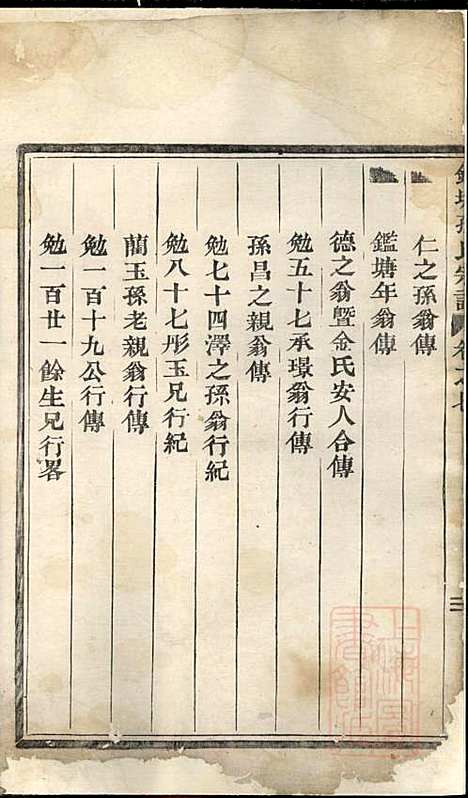 仁之孫翁傳
鑑塘年翁傳
德之翁暨金氏安人合傳
勉五十七承璟翁行傳
孫昌之親翁傳
勉七十四澤之孫翁行紀
勉八十七彤玉兄行紀
蘭玉孫老親翁行傳
勉一百十九公行傳
勉一百廿一餘生兄行畧